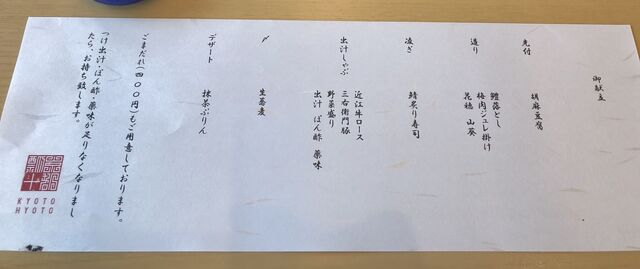 御献立
先付
胡麻豆腐
造り
鱧落とし
梅肉ジュレ掛け
花穂 山葵
凌ぎ
鯖炙り寿司
出汁しゃぶ
近江牛ロース
三右衛門豚
野菜盛り
出汁 ぽん酢 薬味
〆
生蕎麦
デザート
抹茶ぷりん
ごまだれ(四〇〇円)もご用意しております。
つけ出汁・ぽん酢・薬味が足りなくなりまし
たら、お持ち致します。
KYOTO
HYOTO